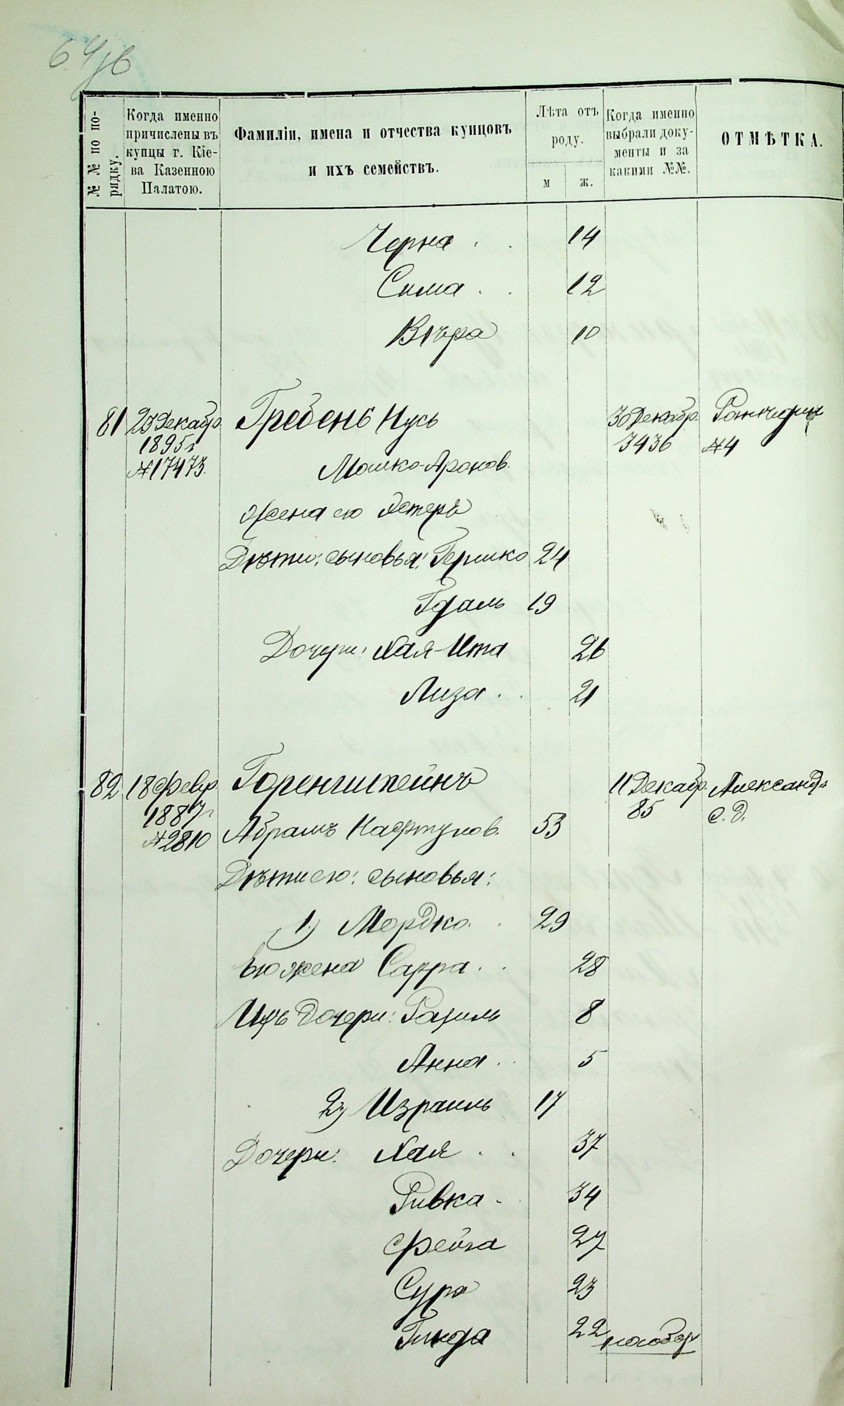 № № по порядку.
Когда именно
причислены въ
купцы г. Кіе-
ва Казенною
Палатою.
Фамиліи, имена и отчества купцовъ
и ихъ семействъ.
Лѣта отъ
роду.
м ж.
Когда именно
выбрали доку-
менты и за
какими №№.
ОТМѢТКА.
Черна 14
Сима 12
Вѣра 10
81 23 Декабр. Гребень Нусь 30 Декабр.
1895 г. 3436 №4
№17473. Мошко-Аронов.
Жена его Эстеръ
Дѣти: сыновья: Гершко 24
Гдаль 19
Дочери: Хая-Ита 26
Лиза 21
82 18 Февр. Горенштейнъ 11 Декабр. Александр
1887 г. 85 с. д.
№2810 Абрамъ Нафтулов. 53
Дѣти его: сыновья:
1) Мордко 29
Его жена Сарра 28
Ихъ дочери: Рахиль 8
Анна 5
2) Израиль 17
Дочери: Хая 37
Ривка 34
Фейга 27
Сура 23
Гинда 22